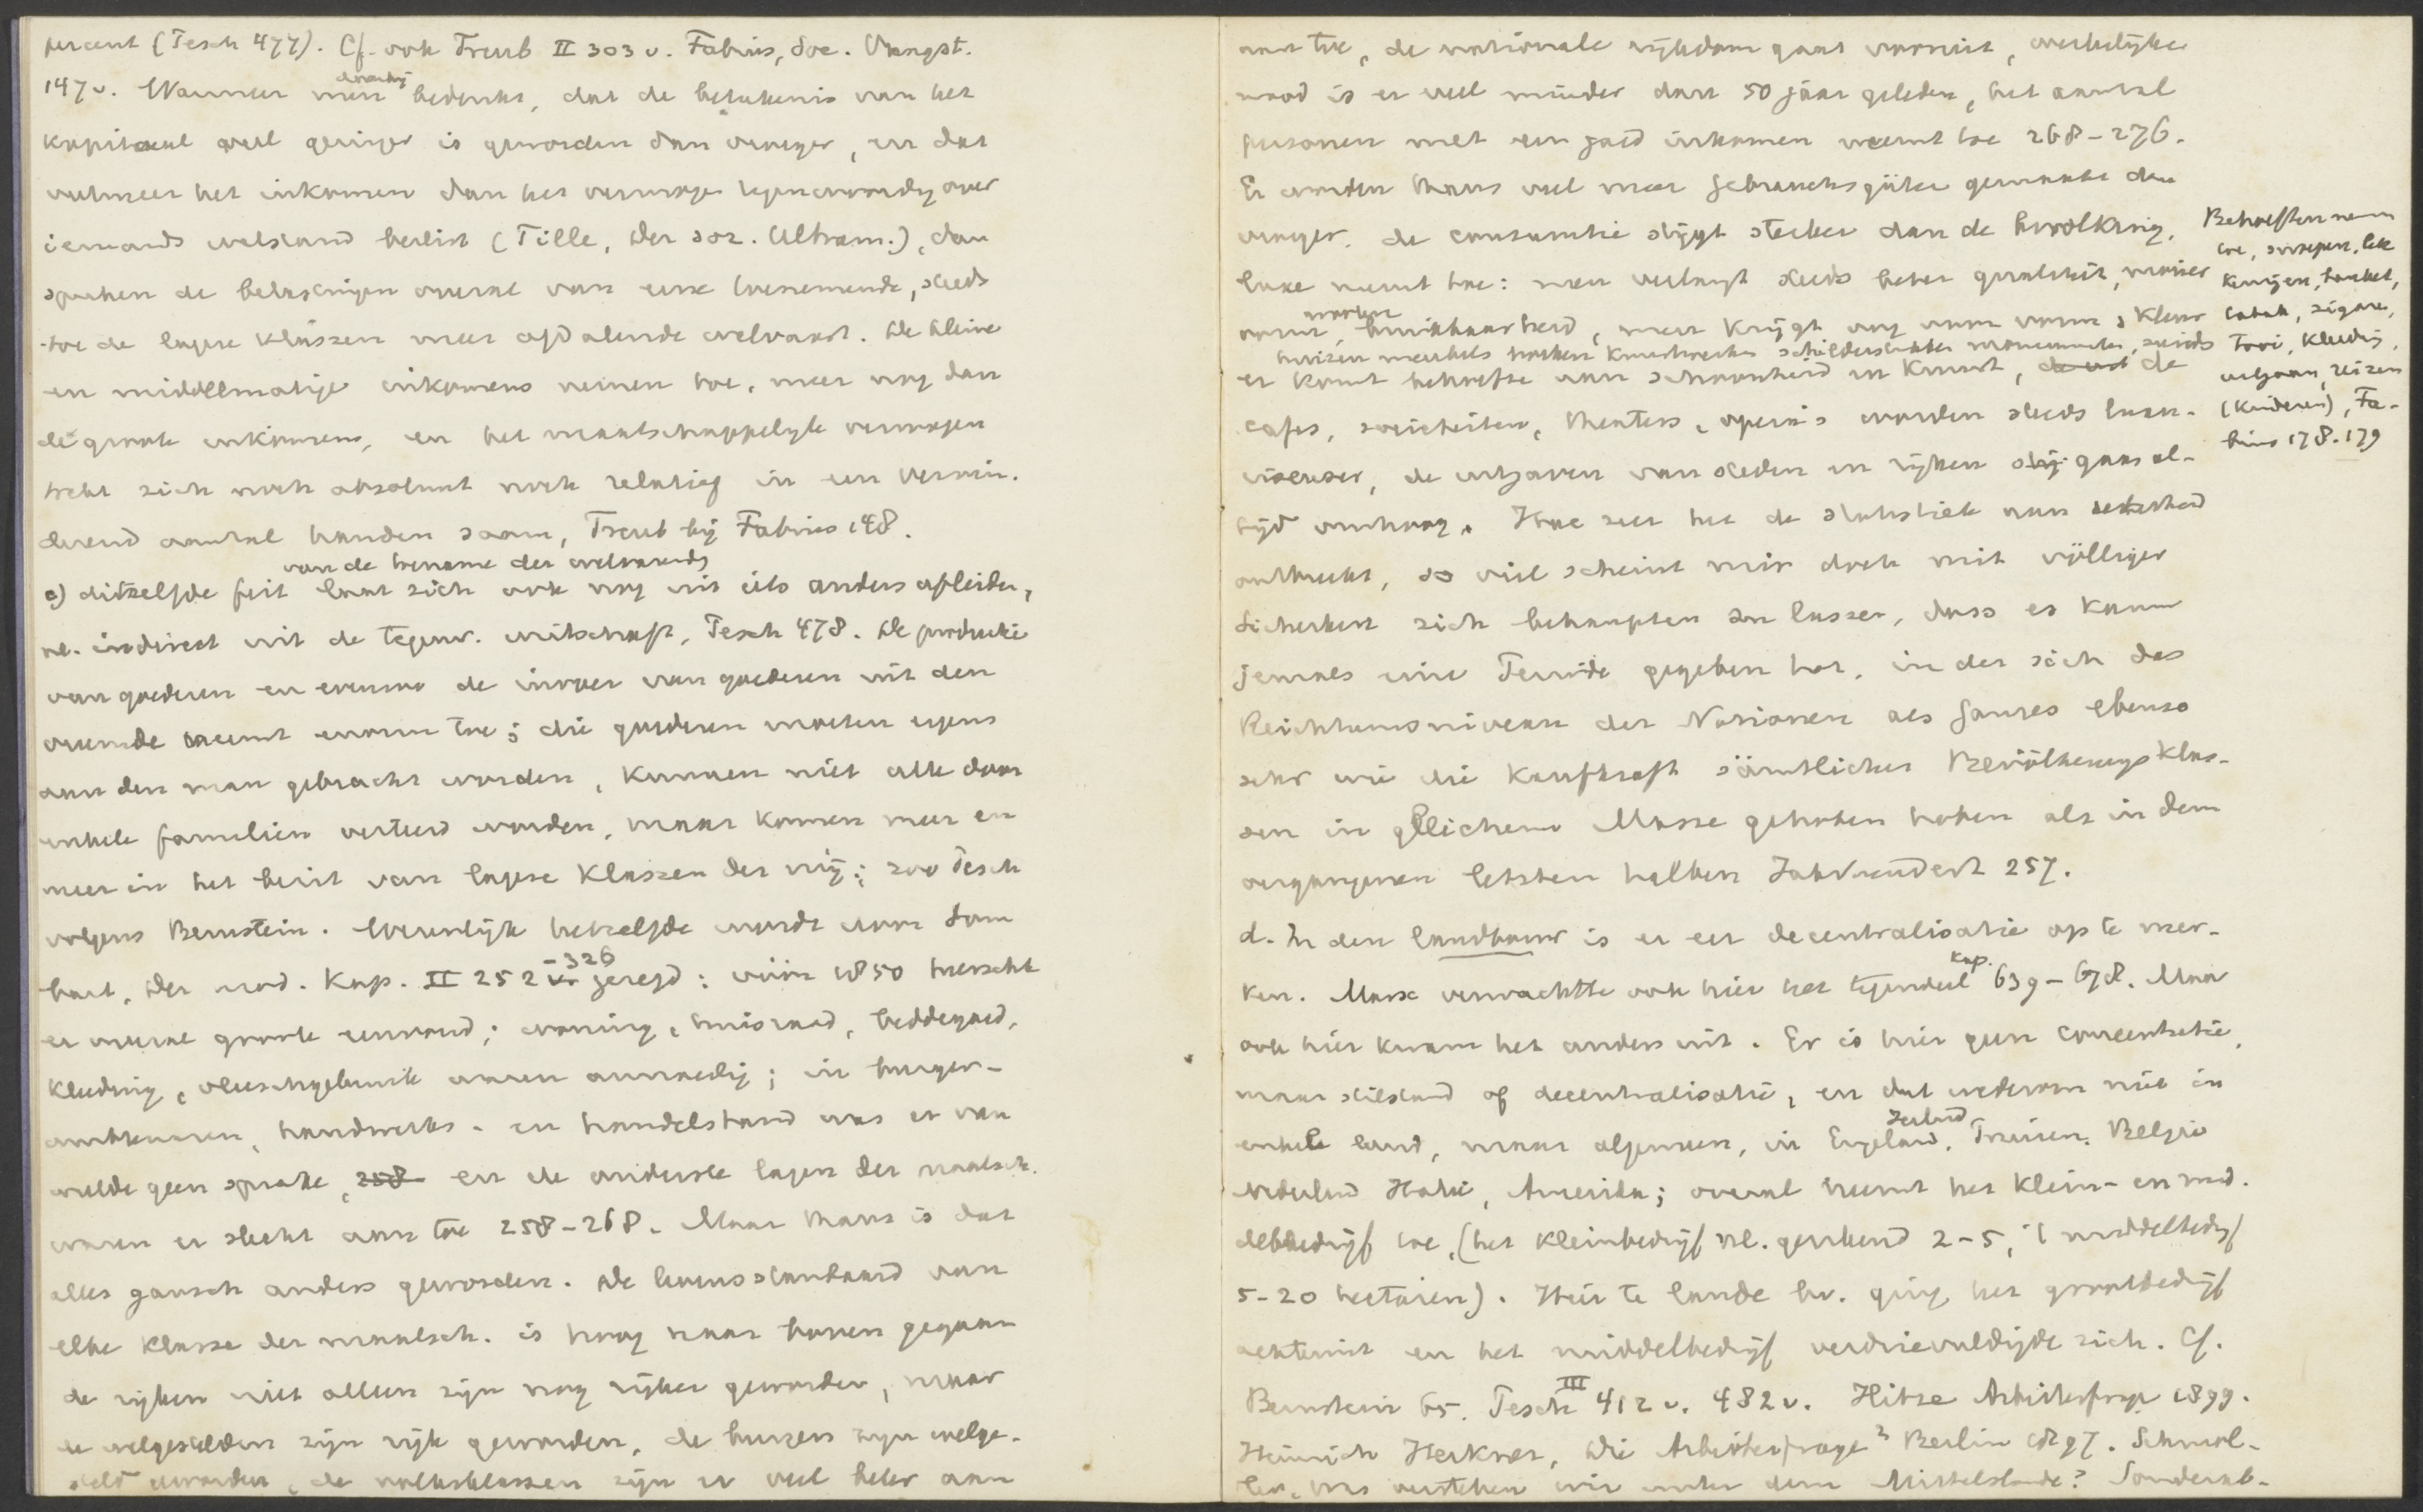 percent (Pesch 477). Cf. ook Treub II 303 v. Fabius, Soc. Vraagst.
147 v. Wanneer men daarbij bedenkt, dat de beteekenis van het
kapitaal veel geringer is geworden dan vroeger, en dat
veelmeer het inkomen dan het vermogen tegenwoordig over
iemands welstand beslist (Tille, Der soz. Ultram.), dan
spreken de belastingen overal van eene toenemende, steeds
toe de lagere klassen meer afdalende welvaart. De kleine
en middelmatige inkomens nemen toe, meer nog dan
de groote inkomens, en het maatschappelijk vermogen
trekt zich noch absoluut noch relatief in een vermin-
derend aantal handen saam, Treub bij Fabius 148.
van de toename der welvaart
c) ditzelfde feit laat zich ook nog uit iets anders afleiden,
nl. indirect uit de tegenw. wirtschaft, Pesch 478. De productie
van goederen en evenzoo de invoer van goederen uit den
vreemde neemt enorm toe; die goederen moeten ergens
aan den man gebracht worden, kunnen niet alle door
enkele familien verteerd worden, maar komen meer en
meer in het bezit van lagere klassen der mij.; zoo Pesch
volgens Bernstein. Eveneens hetzelfde wordt door Som
bart, Der mod. Kap. II 252-326 gezegd: vóór 1850 heerschte
er overal groote eenvoud; woning, huisraad, beddegoed,
kleeding, vleeschgebruik waren armoedig; in burger-
ambtenaren, handwerks- en handelsstand was er van
weelde geen sprake, en de onderste lagen der maatsch.
waren er slecht aan toe 258-268. Maar thans is dat
alles gansch anders geworden. De levensstandaard van
elke klasse der maatsch. is hoog naar boven gegaan
de rijken niet alleen zijn nog rijker geworden, maar
de welgestelden zijn rijk geworden, de burgers zijn welge-
steld geworden, de volksklassen zijn er veel beter aan
aan toe, de nationale rijkdom gaat vooruit, werkelijke
nood is er veel minder dan 50 jaar geleden, het aantal
personen met een goed inkomen neemt toe 268-276.
Er worden thans veel meer Gebrauchsgüter gemaakt dan
vroeger, de consumtie stijgt sterker dan de bevolking,
luxe neemt toe: men verlangt steeds beter qualiteit, mooier
vorm, meerdere bruikbaarheid, men krijgt oog voor vorm, kleur
huizen meubels boeken kunstwerken schilderstukken monumenten, steeds
er komt behoefte aan schoonheid en kunst, de
cafes, societeiten, theaters, opera's worden steeds luxu-
rieuser, de uitgaven van steden en rijken gaan al-
tijd omhoog. Hoe zeer hier de statistiek aan zekerheid
ontbreekt, so viel scheint mir doch mit völliger
Sicherheit sich behaupten zu lassen, dass es kaum
jemals eine Periode gegeben hat, in der sich das
Reichtumsniveau der Nationen als Ganzes ebenso
sehr wie die Kaufkraft sämtlicher Bevölkerungsklas-
sen in gleichem Masse gehoben haben als in dem
vergangenen letzten halben Jahrhundert 257.
Behoeften nemen
toe, snoepen, lek
kernijen, banket,
tabak, sigaren,
Tooi, kleeding,
uitgaan, reizen
(kinderen), Fa-
bius 178. 179
d. In den landbouw is er eer decentralisatie op te mer-
ken. Marx verwachtte ook hier het tegendeel Kap. 639-678. Maar
ook hier kwam het anders uit. Er is hier geen concentratie,
maar stilstand of decentralisatie, en dat wederom niet in
enkele land, maar algemeen, in Engeland, Ierland, Pruisen, Belgie
Nederland Italie, Amerika; overal neemt het klein- en mid-
delbedrijf toe, (het kleinbedrijf nl. gerekend 2-5, 't middelbedrijf
5-20 hectaren). Hier te lande bv. ging het grootbedrijf
achteruit en het middelbedrijf verdrievuldigde zich. Cf.
Bernstein 65. Pesch III 412 v. 482 v. Hitze Arbeiterfrage 1899.
Heinrich Herkner, Die Arbeiterfrage² Berlin 1897. Schmol-
ler, Was verstehen wir unter dem Mittelstande? Sonderab-